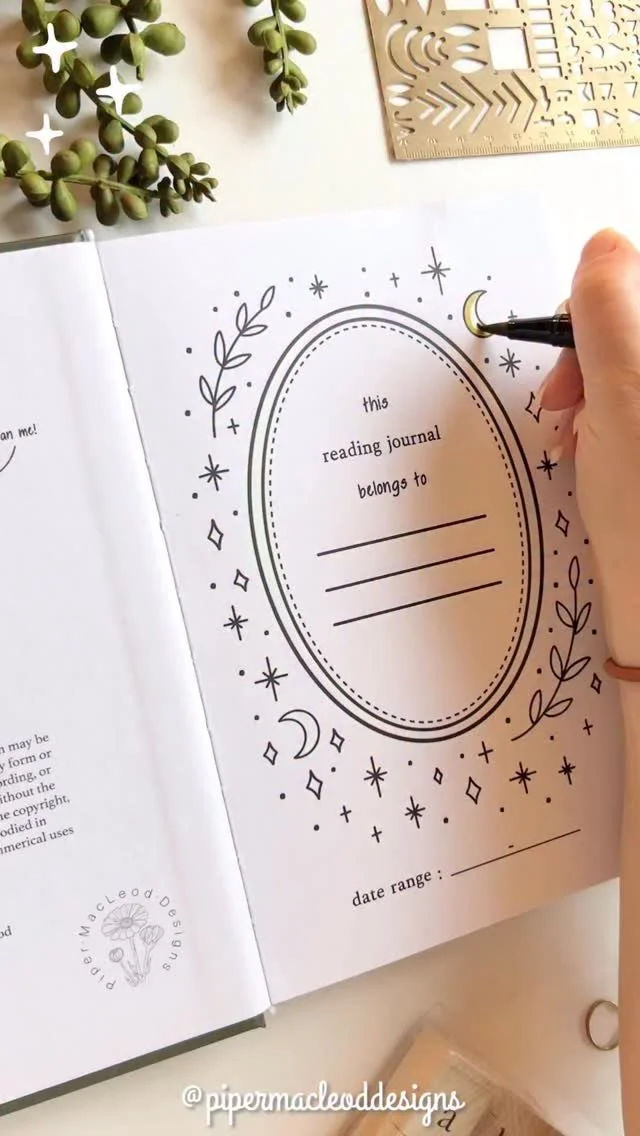 an me!
this
reading journal
belongs to
n may be
y form or
ording, or
ithout the
he copyright,
odied in
mmerical uses
Piper·MacLeod·Designs
date range : -
@pipermacleoddesigns